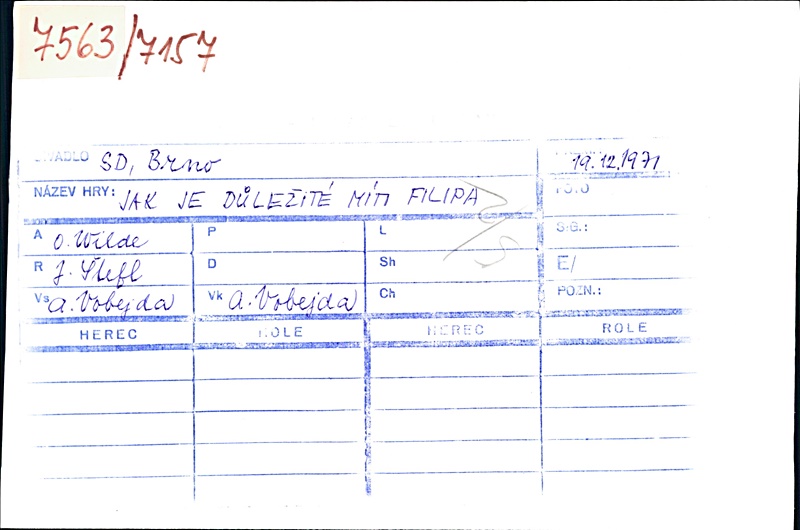 7563/7157
DIVADLO SD, Brno 19.12.1971
NÁZEV HRY: JAK JE DŮLEŽITÉ MÍTI FILIPA
A O. Wilde P L S.G.:
R J. Štefl D Sh E/
Vs A. Vobejda Vk A. Vobejda Ch POZN.:
HEREC ROLE HEREC ROLE